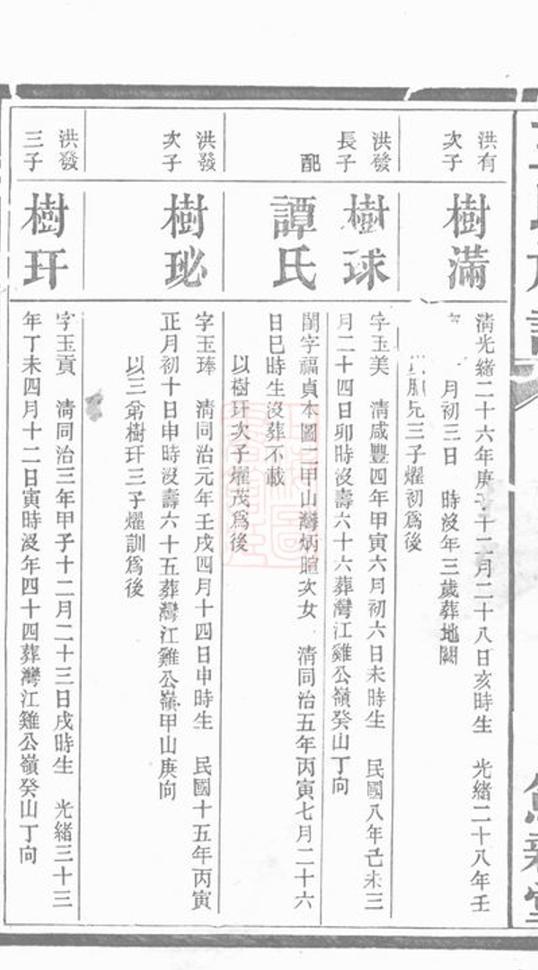 洪有
次子
樹滿
清光緒二十六年庚子十二月二十八日亥時生　光緒二十八年壬
月初三日　時沒年三歲葬地闕
兄三子燿初爲後
洪發
長子
樹球
字玉美　清咸豐四年甲寅六月初六日未時生　民國八年己未三
月二十四日卯時沒壽六十六葬灣江雞公嶺癸山丁向
配
譚氏
閨字福貞本圖二甲山灣炳暄次女　清同治五年丙寅七月二十六
日巳時生沒葬不載
以樹玕次子燿茂爲後
洪發
次子
樹珌
字玉琫　清同治元年壬戌四月十四日申時生　民國十五年丙寅
正月初十日申時沒壽六十五葬灣江雞公嶺甲山庚向
以三弟樹玕三子燿訓爲後
洪發
三子
樹玕
字玉貢　清同治三年甲子十二月二十三日戌時生　光緒三十三
年丁未四月十二日寅時沒年四十四葬灣江雞公嶺癸山丁向